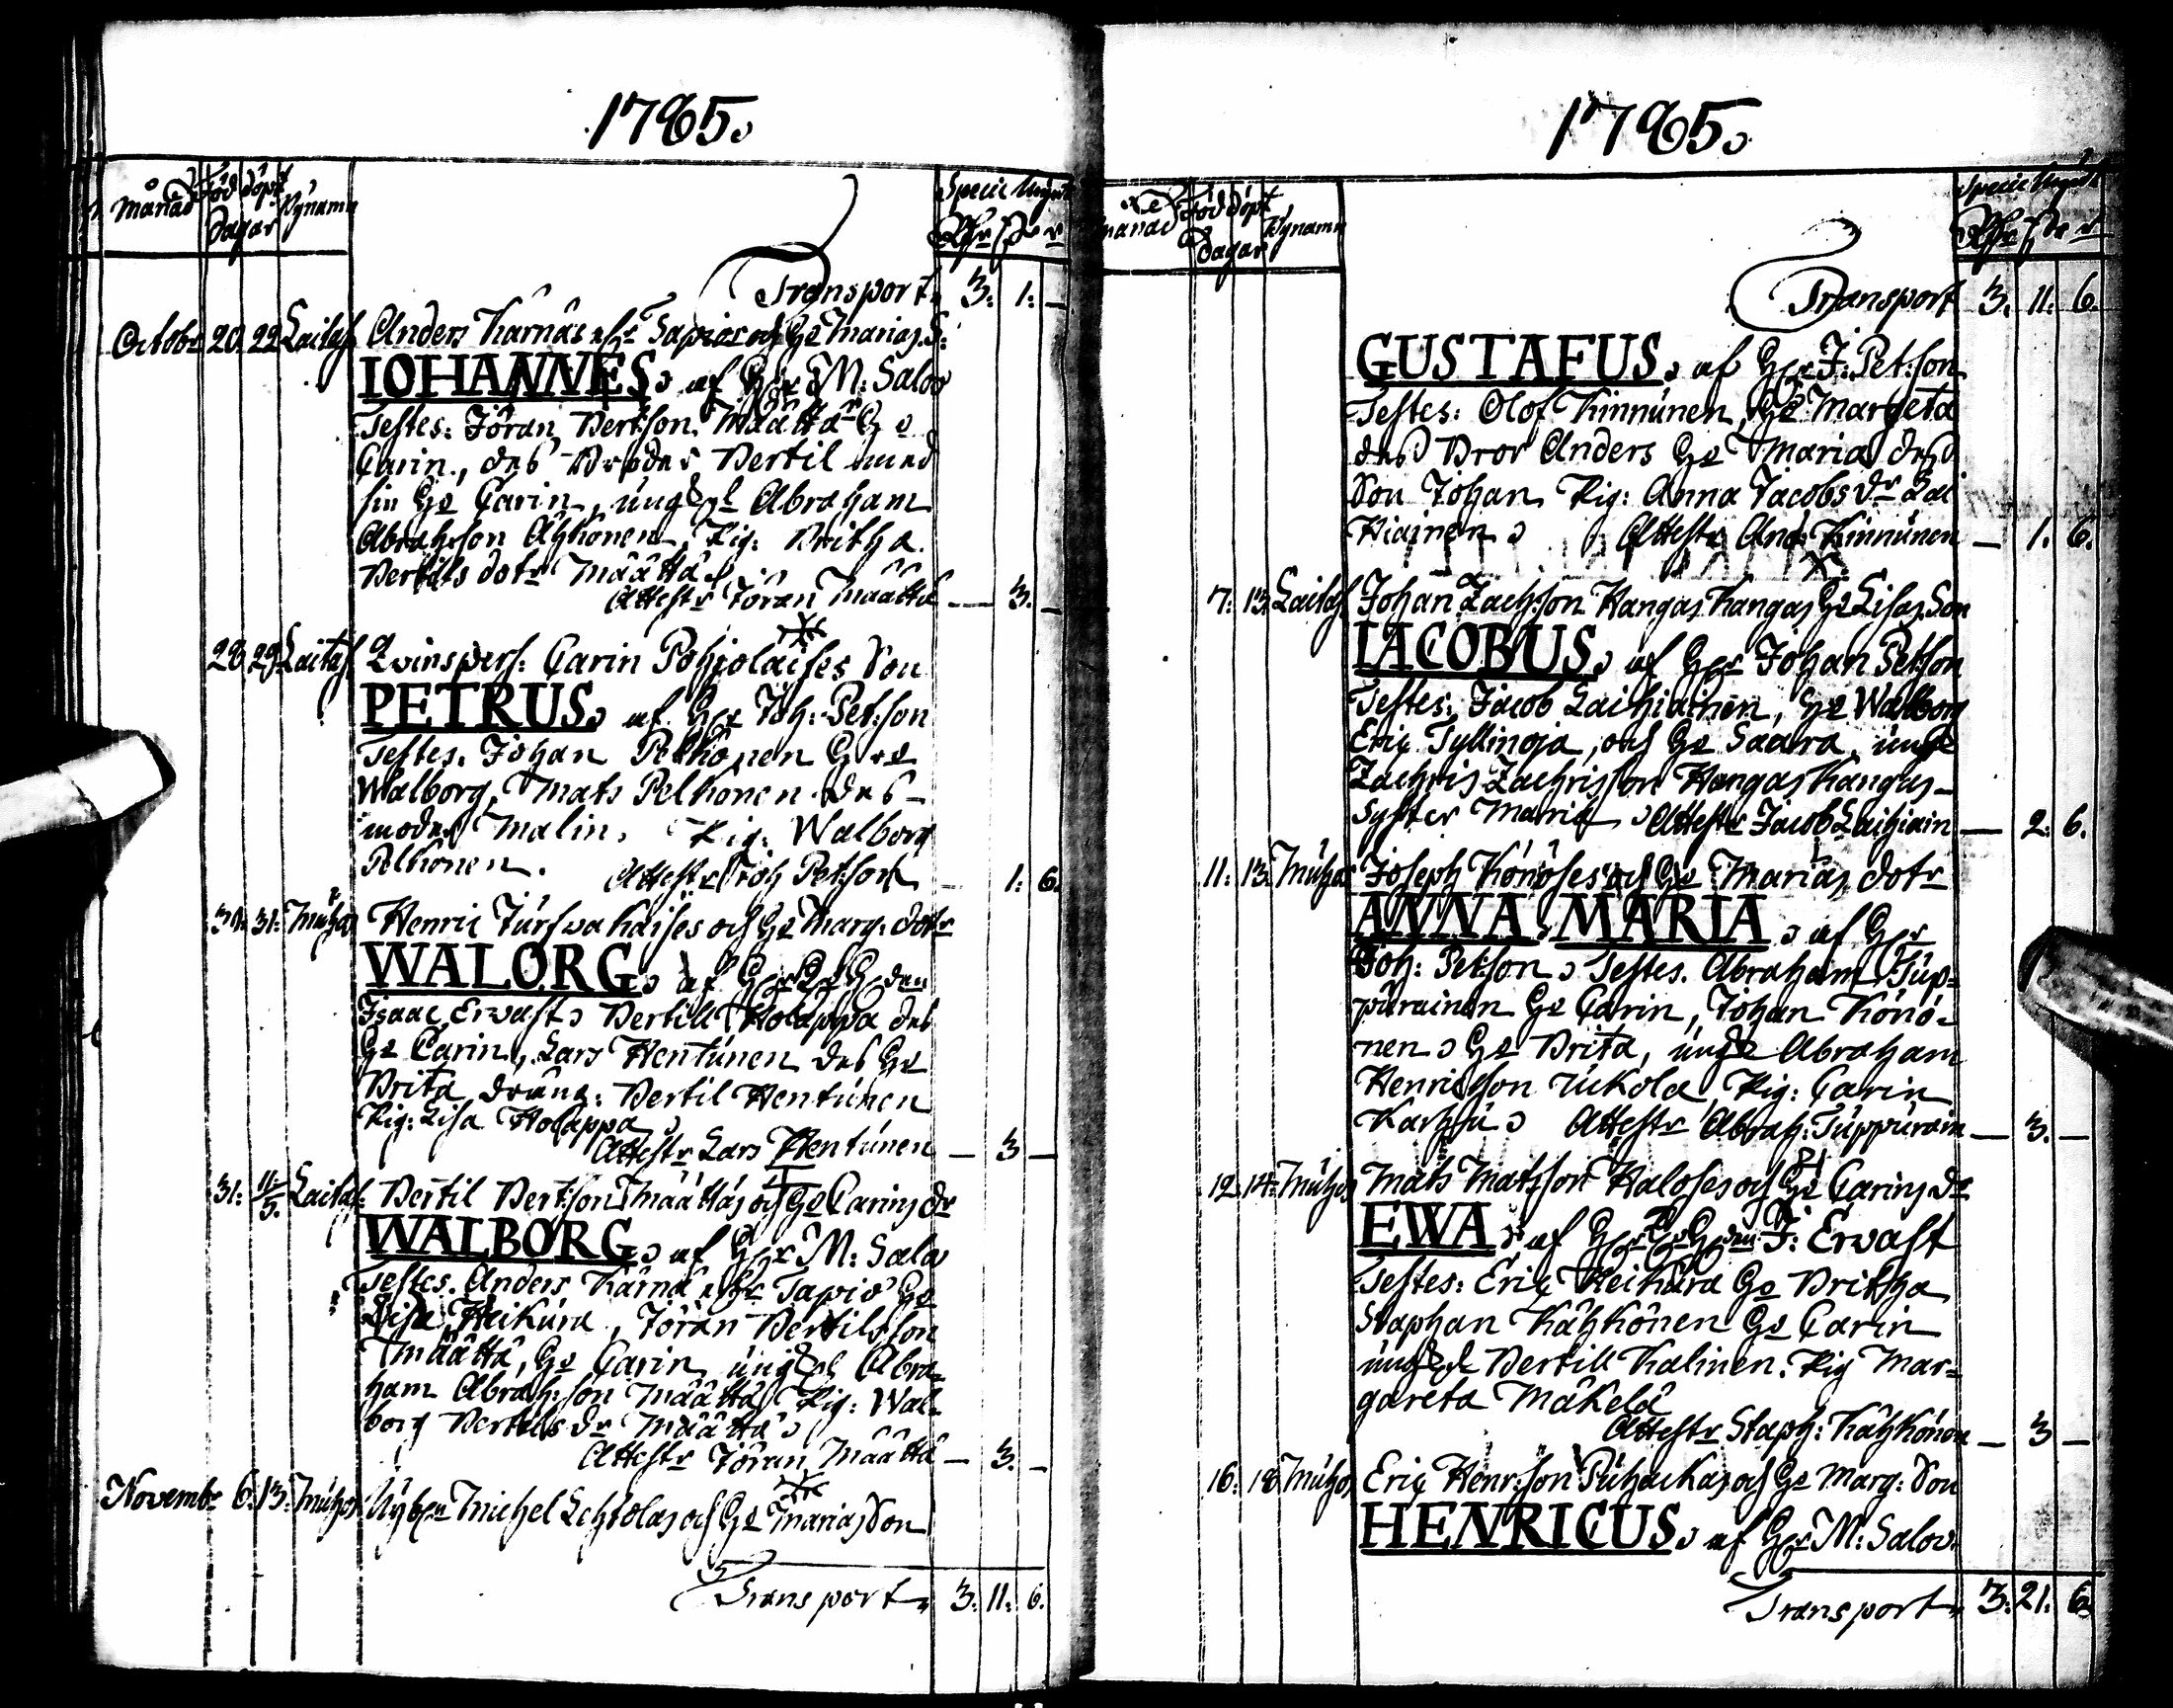 1785.
Månad Född döpt Bÿnamn
dagar
Specie
Transport 3: 1: —
Octobr 20. 22 Laitas: Anders Karnäs Tapios och Hu Marias S:
IOHANNES. af M: Salov
Testes: Jöran Bertson Määttä Hu
Carin, des Broder Bertil med
sin Hu Carin, Abraham
Abrahson Kähkönen, Pig: Britha
Bertils dotr Määttä
Attestr Jöran Määttä — 3. —
28 29 Laitas Carin Pohjolaises Son
PETRUS. af Joh: Pet:son
Testes. Johan Pelkonen
Walborg, Mats Pelkonen des
moder Malin, Pig: Walborg
Pelkonen. Attestr Joh Pet:son — 1: 6.
30. 31: Muhos Henric Turswakaises och Hu Marg: dotr
WALORG. af
Isaac Erwast. Bertill Holappa des
Hu Carin, Lars Hentunen des Hu
Brita dräng: Bertil Hentunen
Pig: Lisa Holappa
Attestr Lars Hentunen — 3 —
31: 11/5. Laitas: Bertil Bertson Määttäs och Hu Carins dr
WALBORG. af M: Salov
Testes. Anders Karnä Tapio Hu
Lisa Heikura, Jöran Bertilsson
Määttä, Hu Carin Abra-
ham Abrah:son Määttä Pig: Wal-
borg Bertils dr Määttä
Attestr Jöran Määttä — 3. —
Novembr 6. 13: Muhos Nÿbÿ Michel Lehtolas och Hu Marias Son
Transport 3: 11: 6.
1785.
Månad Född döpt Bÿnamn
dagar
Specie
Transport 3. 11: 6.
GUSTAFUS. af J: Pet:son
Testes: Olof Kinnunen, Hu Margeta
des Bror Anders Hu Maria des
Son Johan Pig: Anna Jacobs dr Lai
hiainen Attestr And: Kinnunen — 1. 6.
7: 13: Laitas Johan Zach:son Kangas Kangas Hu Lisas Son
IACOBUS. af Johan Petson
Testes: Jacob Laihiainen, Hu Walborg
Eric Tyllinoja, och Hu Saara,
Zachris Zachrisson Kangas Kangas
Syster Maria Attestr Jacob Laihiain — 2: 6.
11: 13: Muhos Joseph Könöses och Hu Marias dotr
ANNA MARIA. af
Joh: Petson. Testes. Abraham Tup-
purainen Hu Carin, Johan Könö-
nen Hu Brita, Abraham
Henricsson Ukola Pig: Carin
Karhu Attestr Abrah: Tuppurain — 3. —
12. 14: Muhos Mats Matsson Kaloses och Hu Carins dr
EWA af J: Erwast
Testes: Eric Heikura Hu Britha
Staphan Kähkönen Hu Carin
Bertill Kalinen. Pig Mar-
gareta Mäkelä
Attestr Staph: Kähkönen — 3 —
16: 18 Muhos Eric Henr:son Puhackas och Hu Marg: Son
HENRICUS. af M: Salov.
Transport 3: 21: 6